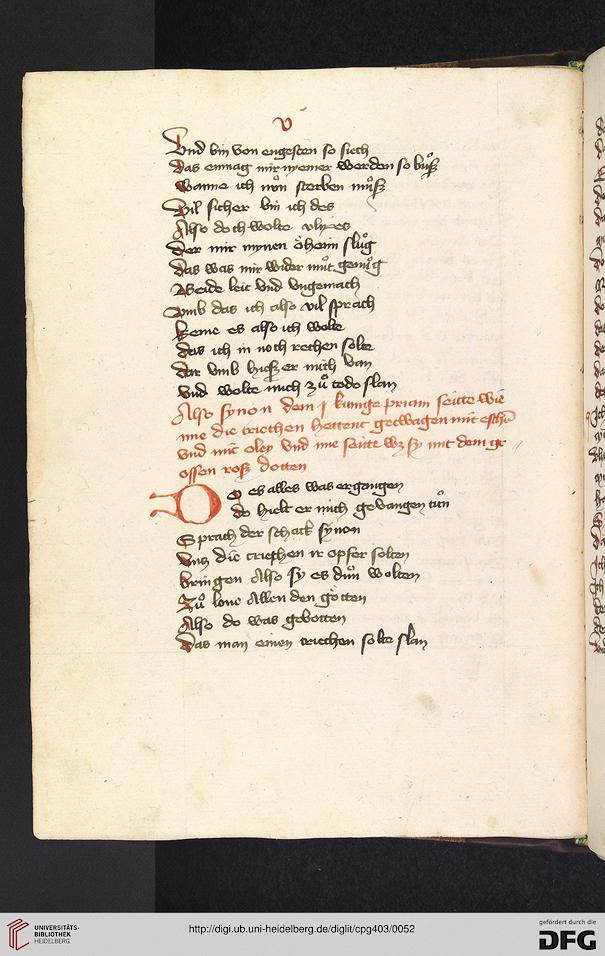 v
Vnd bin von engesten so siech
Das enmag mir nyemer werden so bůß
Wanne ich nůn sterben můß
Vil sicher bin ich des
Also doch wolte vlyxes
Der mir mynen öheim slůg
Das was mir wider můt genůg
Beide leit vnd vngemach
Vmb das ich also vil sprach
Keme es also ich wolte
Das ich in noch rechen solte
Dar vmb hieß er mich van
Vnd wolte mich zů tode slan
Also synon dem kunige priam seitte wie
ime die criechen hettent getwagen mit eschē
vnd mit oley vnd ime seitte wz sy mit dem gr
ossen roß dotten
Do es alles was ergangen
do hielt er mich gevangen
Sprach der schack synon
Vnz die criechen ir opfer solten
bringen Also sy es důn wolten
Zů lone Allen den götten
Also do was gebotten
Das man einen criechen solte slan
UNIVERSITÄTS-
BIBLIOTHEK
HEIDELBERG
http://digi.ub.uni-heidelberg.de/diglit/cpg403/0052
gefördert durch die
DFG